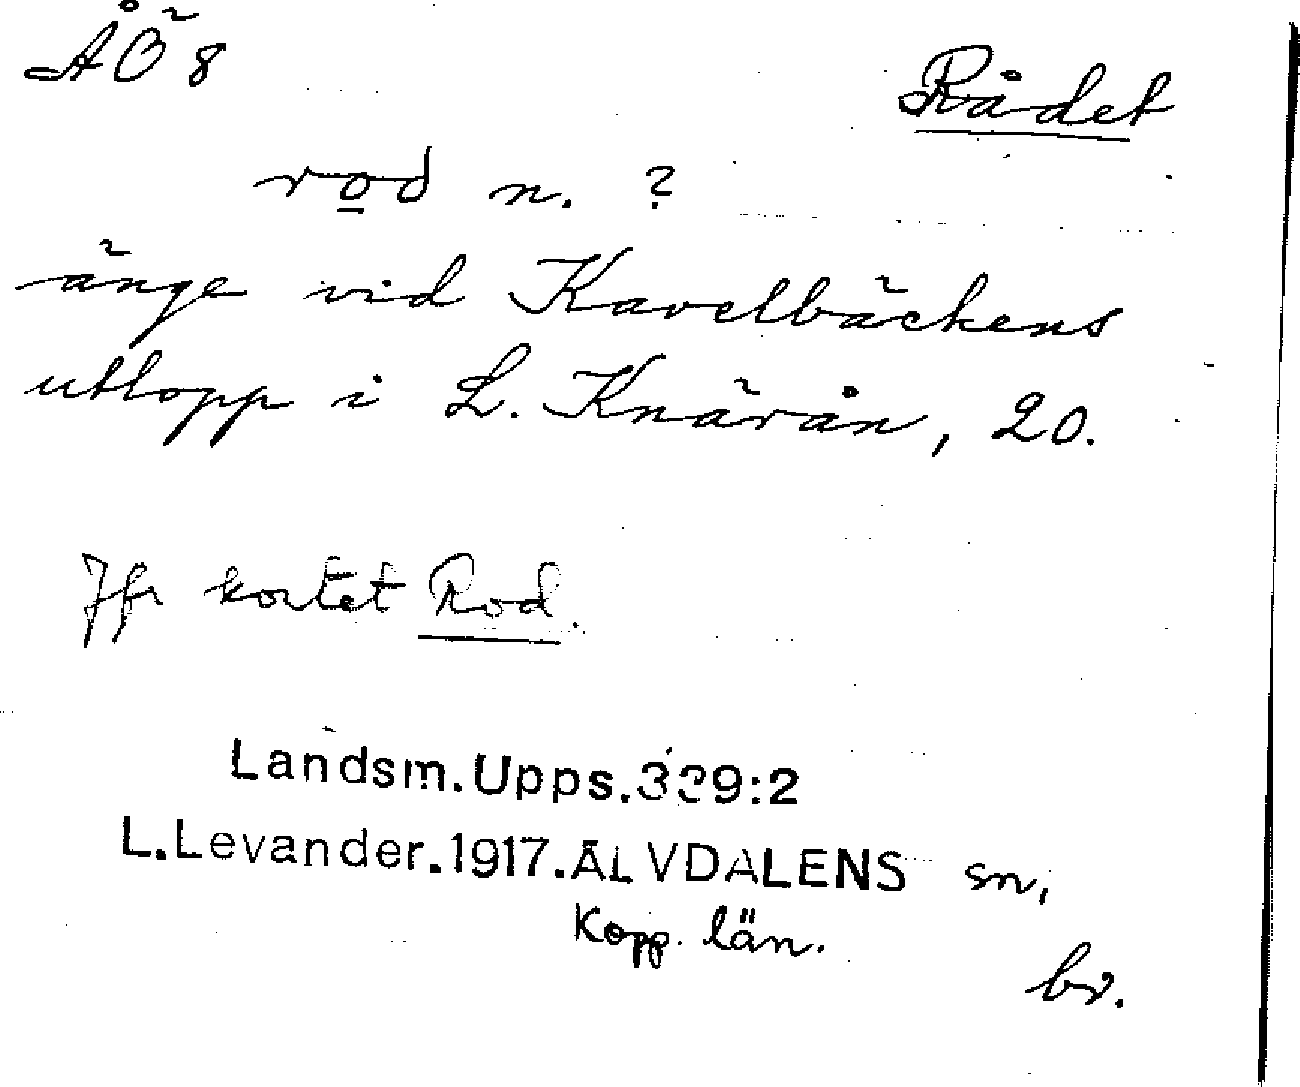 ÅÖ 8
Rådet
rod n. ?
änge vid Kavelbäckens
utlopp i L. Knärån, 20.
Jfr kortet Rod.
Landsm.Upps.339:2
L.Levander.1917.ÄLVDALENS sn,
Kopp. län.
br.